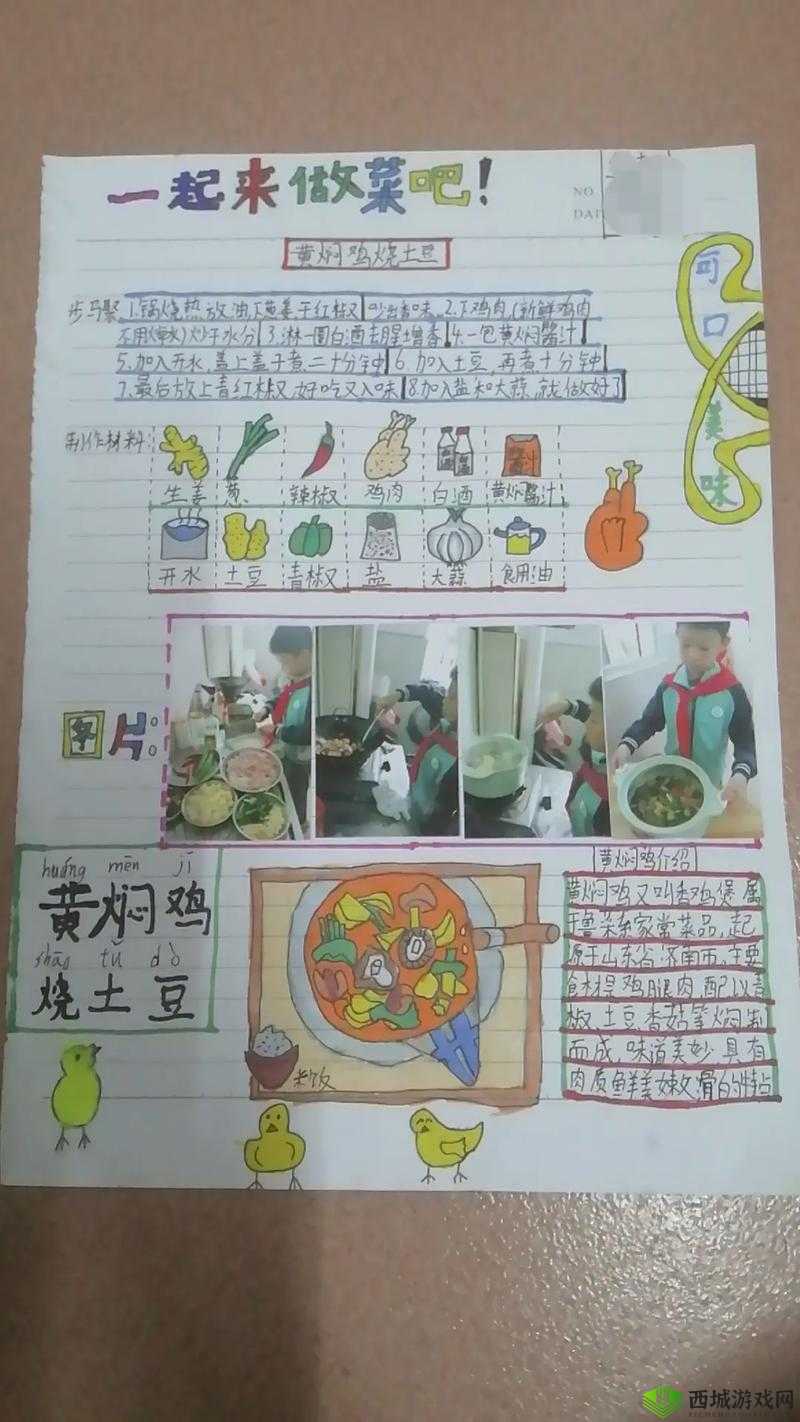 一起来做菜吧！
NO.
DAT
黄焖鸡烧土豆
步马聚 1.锅烧热放油,下葱姜干红椒 炒出香味 2.下鸡肉,(新鲜鸡肉
不用焯水)炒干水分 3.淋一圈白酒去腥增香 4.一包黄焖酱汁
5.加入开水,盖上盖子煮二十分钟 6.加入土豆,再煮十分钟
7.最后放上青红椒又好吃又入味 8.加入盐和大蒜,就做好了
可口美味
制作材料:
生姜 葱 辣椒 鸡肉 白酒 黄焖酱汁
酱汁
开水 土豆 青椒 盐 大蒜 食用油
图片:
huáng mēn jī
黄焖鸡
shāo tǔ dò
烧土豆
米饭
黄焖鸡介绍
黄焖鸡又叫香鸡煲,属
于鲁菜系家常菜品,起
源于山东省济南市,主要
食材是鸡腿肉,配以青
椒、土豆、香菇等焖制
而成,味道美妙,具有
肉质鲜美嫩滑的特点
西城游戏网